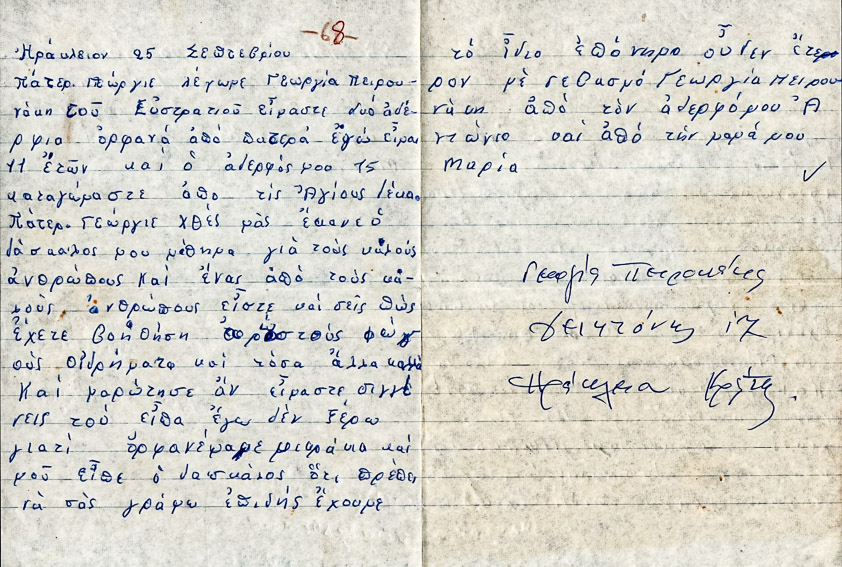 -68-
Ηράκλειον 25 Σεπτεβρίου
Πάτερ. Γιώργιε λέγωμε Γεωργία Πειρου-
νάκη τοῦ Εὐστρατιοῦ εἴμαστε δυό ἀδέ-
ρφια ὀρφανά ἀπό πατερά ἐγώ εἶμαι
11 ἐτῶν καί ὁ ἀδερφός μου 15
καταγώμαστε ἀπο τίς Ἁγίους Δέκα.
Πάτερ. Γεώργιε χθές μᾶς ἔκανε ὁ
δάσκαλος μου μάθημα γιά τούς καλούς
ἀνθρώπους καί ἕνας ἀπό τούς κα-
λούς ἀνθρώπους εἶστε καί σεῖς πώς
ἔχετε βοηθήση φώχ
ούς ὁιδρήματα καί τόσα ἄλλα καλά
Καί μαρώτησε ἄν εἴμαστε σιγγε
νεις τοῦ εἶπα ἐγω δέν ξέρω
γιατί ὀρφανέψαμε μικράκια καί
μοῦ εἶπε ὁ δασκάλος ὅτι πρέπει
νά σάς γράψω ἐπιδής ἔχουμε
τό ἴδιο ἐπόνημο οὖδεν ἕτερο
ρον μέ σεβασμό Γεωργία Πειρου
νάκη ἀπό τόν ἀδερφόμου Ἀ
ντώνιο καί ἀπό τήν μαμά μου
Μαρία
Γεωργία Πειρουνάκης
17
Ἡράκλειο Κρήτης.